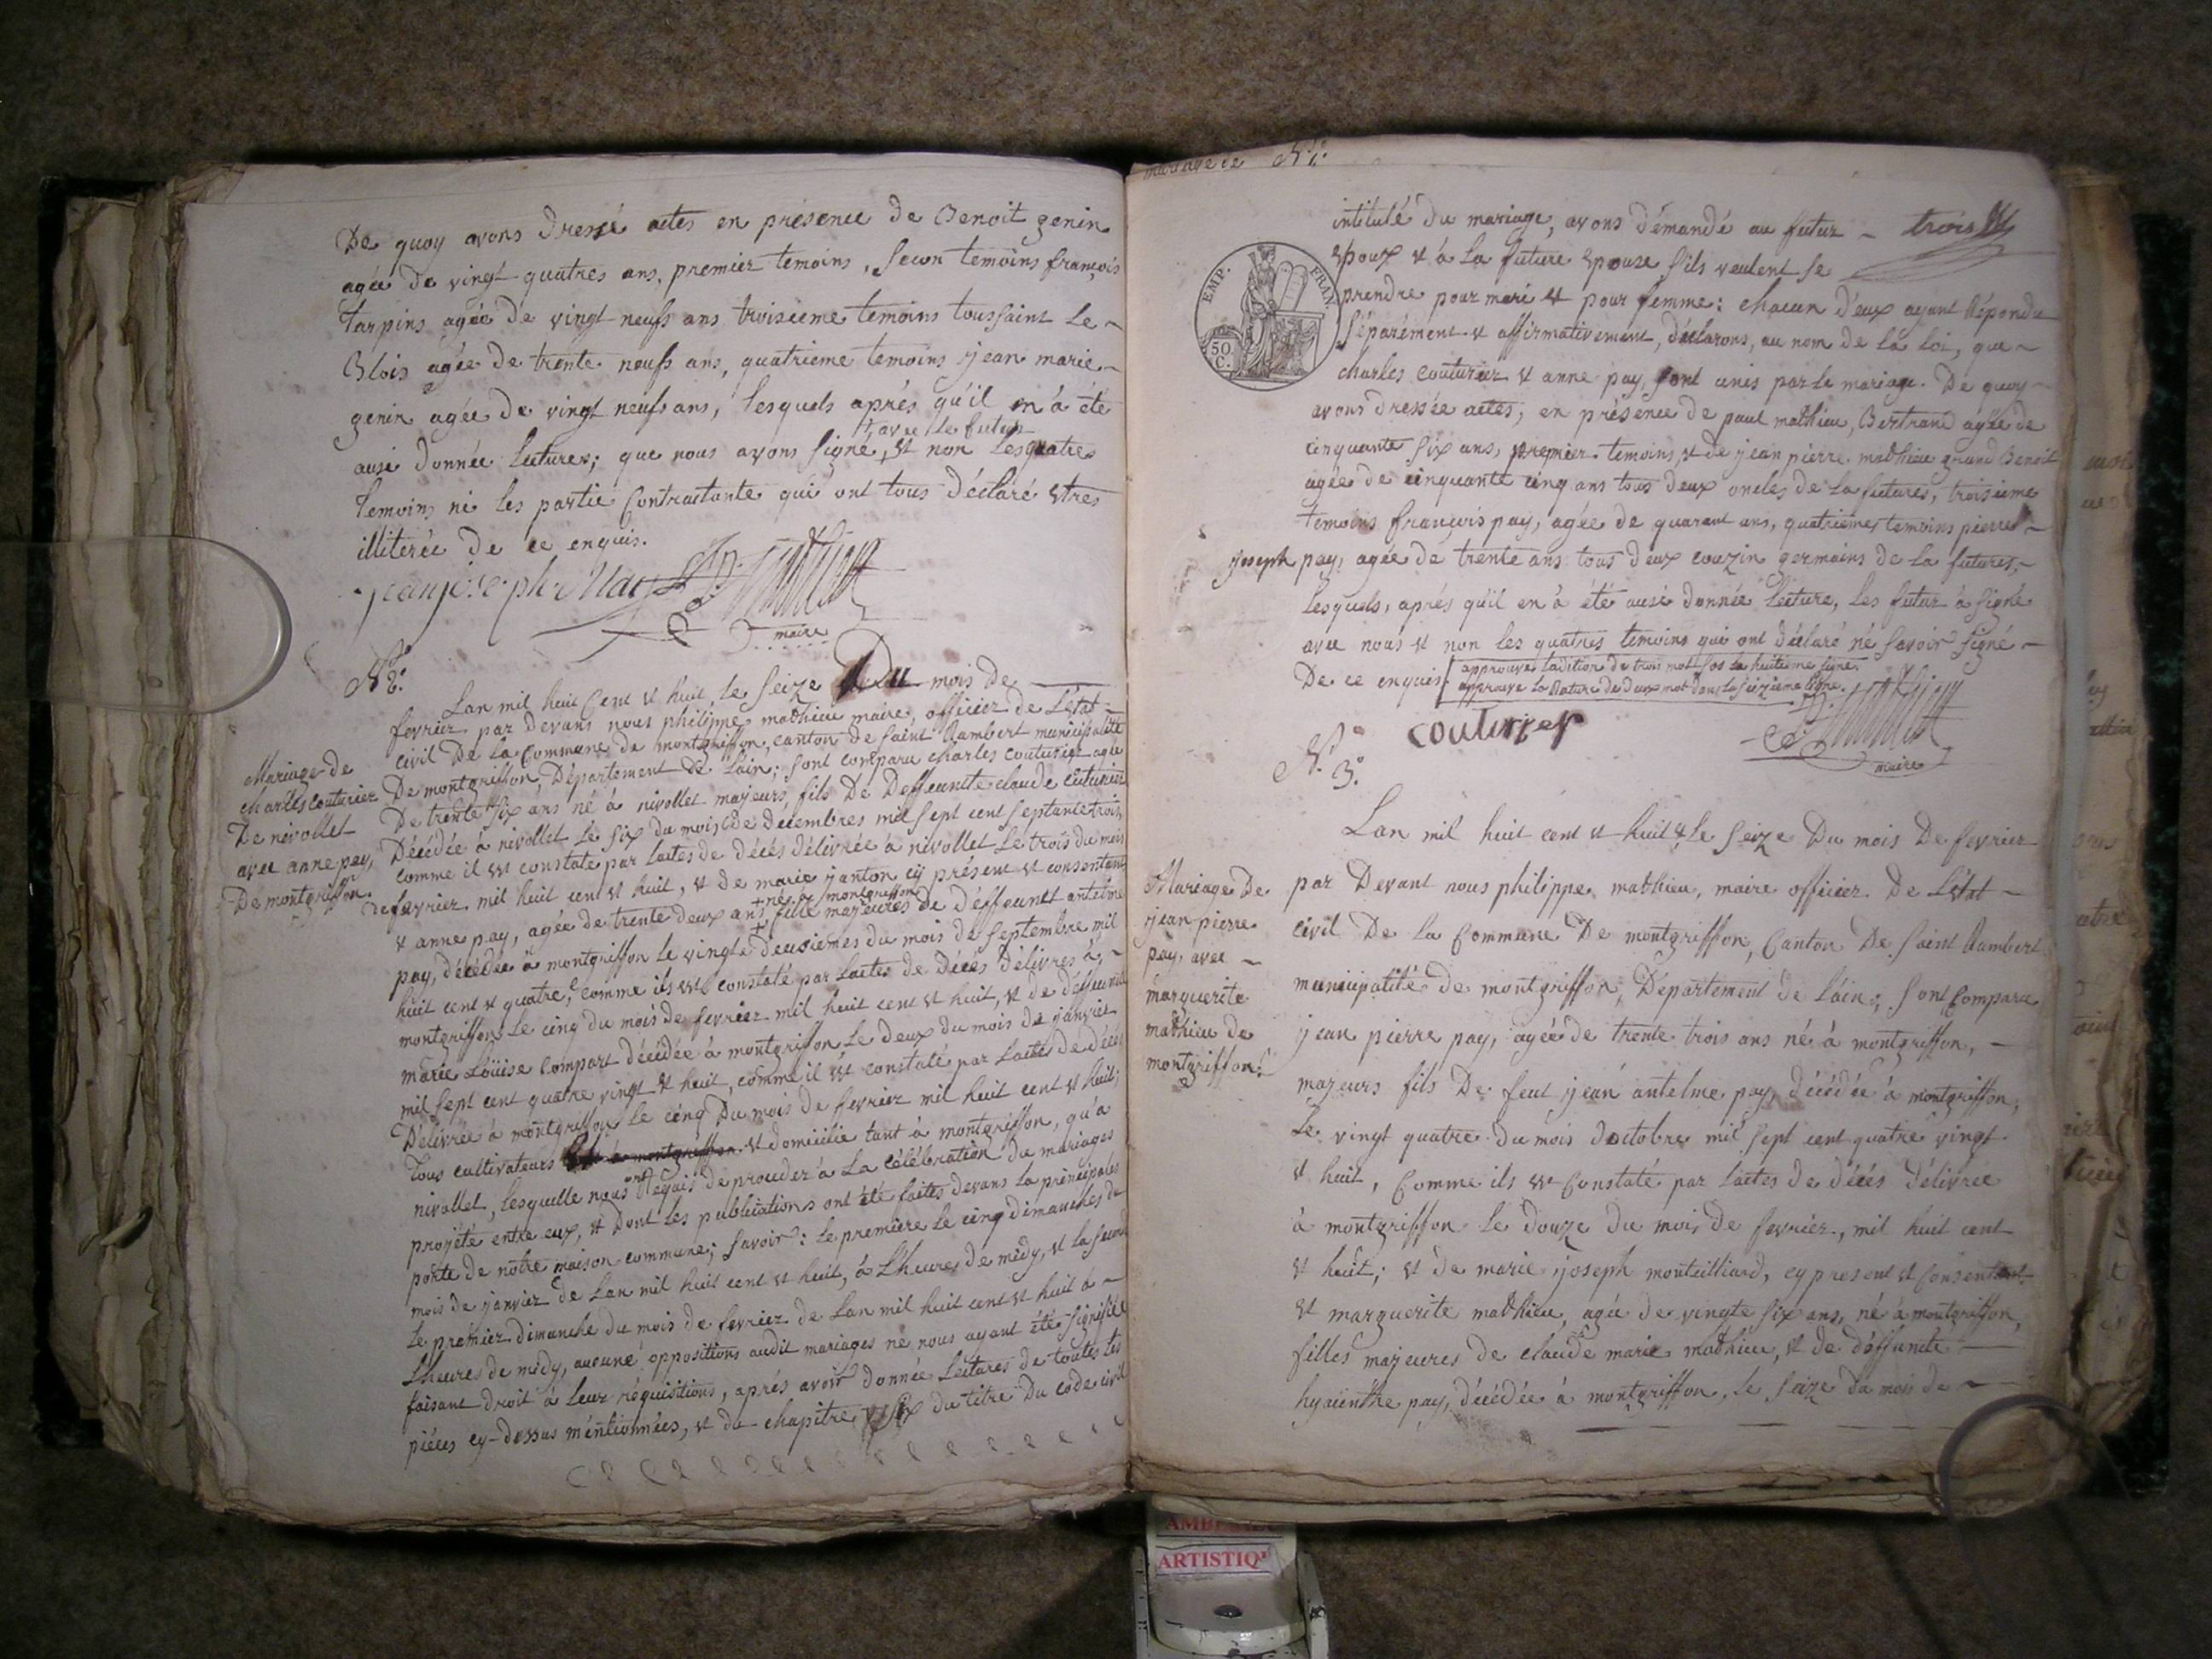 De quoy avons Dressé actes en présence de Benoit genin
agée de vingt quatres ans, premier temoins, secon temoins françois
tarpins agée de vingt neufs ans troisieme temoins toussaint Le-
Blois agée de trente neufs ans, quatrieme temoins jean marie-
genin agée de vingt neufs ans, lesquels après qu'il en à été
avec le futur
ausi donnée Lectures; que nous avons signé, et non les quatres
temoins ni les partie Contractante qui ont tous déclaré etres
illiterée de ce enquis.
jean joseph
maire
N 2.
Lan mil huit Cent et huit, le seize Du mois de
fevrier par devans nous philipme mathieu maire, officier de L'état-
civil De la Commune de montgriffon, canton de saint Rambert municipalité
De montgriffon, Département de Lain; sont comparu charles couturier agée
De trente six ans né à nivollet majeurs, fils De Deffeuncte claude couturier
Décédée à nivollet le six du mois de decembres mil sept cent septante trois,
comme il est constate par lactes de décés délivrée à nivollet Le trois du mois
de fevrier mil huit cent et huit, et de marie janton cy présent et consentant
+ né à montgriffon
et anne pay, agée de trente deux ans + fille majeures de déffeunct antelme
pay, décédée à montgriffon le vingte deusiemes du mois de septembre mil
huit cent et quatre, comme ils est constaté par lactes de Décés délivres à,-
montgriffon le cinq du mois de fevrier mil huit cent et huit, et de déffeuncte
marie Loüise Compart décédée à montgriffon Le deux du mois de janvier
mil sept cent quatre vingt et huit, comme il est constaté par Lactes de décés
Délivrée à montgriffon le cinq Du mois de fevrier mil huit cent et huit;
tous cultivateurs et domicilie tant à montgriffon, qu'a
nivollet, lesquelle nous ont Requis de proceder à La célébration du mariages
projété entre eux, et Dont les publications ont été faites devans la principales
porte de notre maison commune; savoir: le premiere le cinq dimanches du
mois de janvier de Lan mil huit cent et huit, à L'heures de midy, et la second
Le premier Dimanche du mois de fevrier de Lan mil huit cent et huit à-
L'heures de midy, aucune oppositions audit mariages ne nous ayant été signifiée
faisant droit à leur réquisitions, aprés avoir donnée Lectures de toutes les
piéces cy-dessus méntionnées, et du chapitre six du titre Du code civil
Mariage de
charles couturier
De nivollet
avec anne pay,
De montgriffon.
mariage de N.
intitulé du mariage, avons démandé au futur - trois
epoux et à La future epouse s'ils veulent se
prendre pour mari et pour femme: chacun d'eux ayant Répondu
séparément et affirmativement, déclarons, au nom de la Loi, que-
charles couturier et anne pay, sont unis par le mariage. De quoy-
avons dressée actes; en présence de paul mathieu, Bertrand agée de
cinquante six ans, premier temoins, et de jean pierre mathieu grand Benoit
agée de cinquante cinq ans tous deux oncles de La futures, troisieme
temoins françois pay, agée de quarant ans, quatriemes temoins pierre-
joseph pay, agée de trente ans tous deux couzin germains de La futures,-
Lesquels, aprés qu'il en à été ausi donnée Lecture, les futur à signé
avec nous et non les quatres temoins qui ont déclaré né savoir signé-
De ce enquis. approuve ladition de trois mot sos la huitieme ligne.
approuve la Rature de deux mot dans la seizieme ligne.
EMP. FRAN
50
C.
couturier
maire
N. 3.
Lan mil huit cent et huit & le seize Du mois De fevrier
par Devant nous philippe mathieu, maire officier De L'état-
civil De La Commune De montgriffon, Canton De saint Rambert
municipalité de montgriffon, Département de Lain; sont Comparu
jean pierre pay, agée de trente trois ans né à montgriffon,-
majeurs fils De feut jean antelme pay, décédée à montgriffon,
Le vingt quatre du mois doctobre mil sept cent quatre vingt
et huit, Comme ils est Constaté par lactes de décés délivrée
à montgriffon le douze du mois de fevrier, mil huit cent
et huit; et de marie joseph monteilliard, cy present et Consentant,
et marguerite mathieu, agée de vingte six ans, né à montgriffon,
filles majeures de claude marie mathieu, et de déffuncte
hyacinthe pay, décédée à montgriffon, le seize du mois de-
Mariage De
jean pierre
pay, avec-
marguerite
mathieu de
montgriffon.
AMB
ARTISTIQ